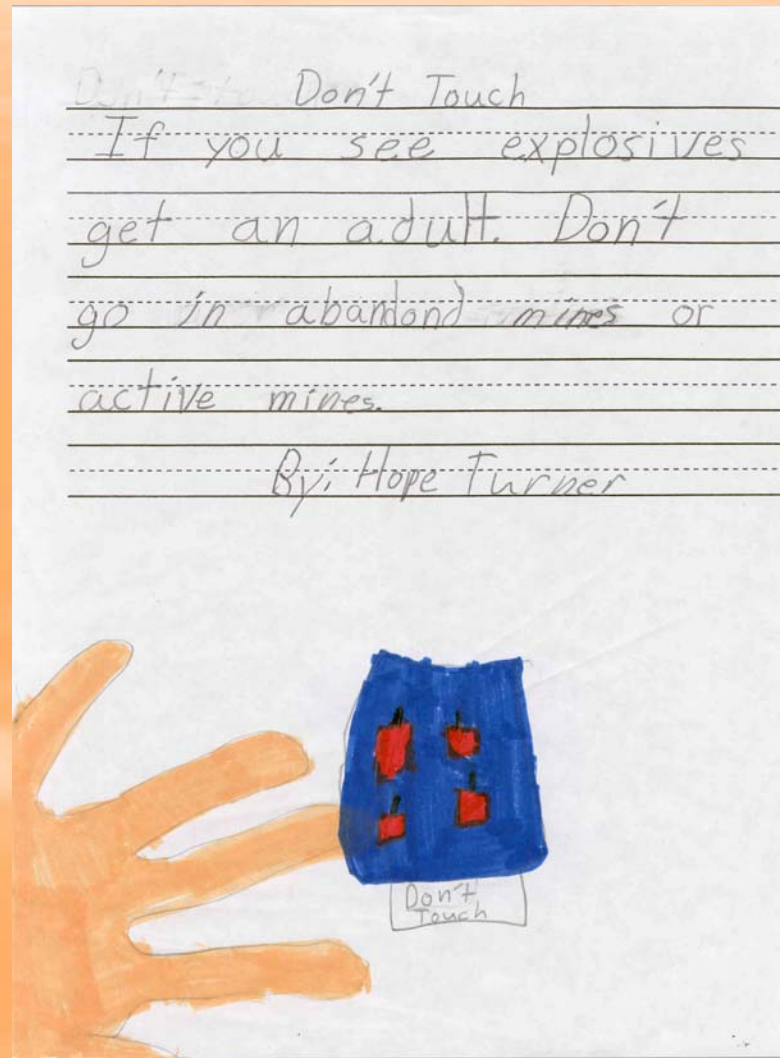 Don't Touch
If you see explosives
get an adult. Don't
go in abandond mines or
active mines.
By: Hope Turner
Don't
Touch